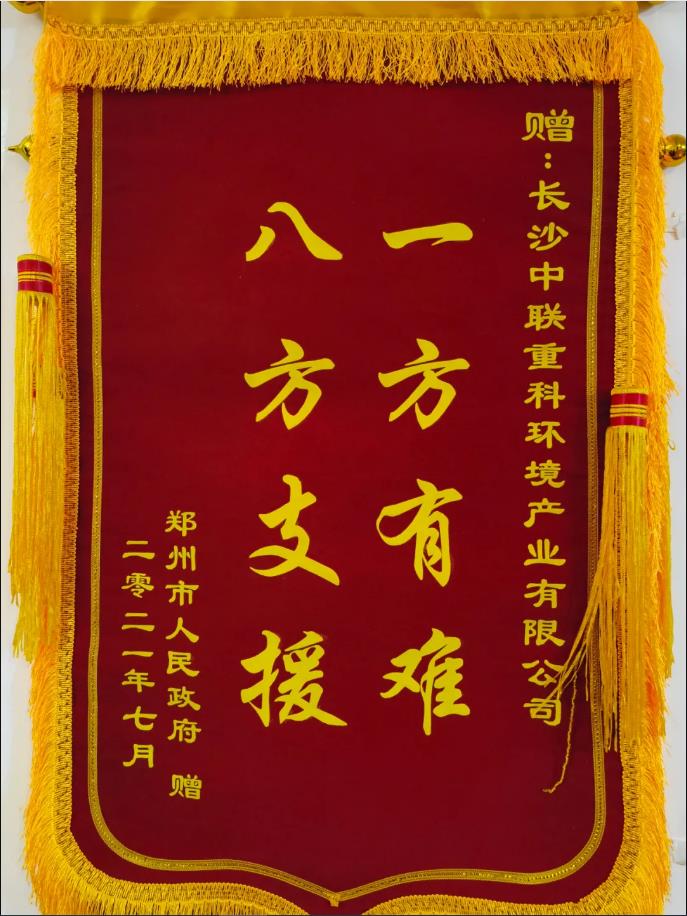 赠：长沙中联重科环境产业有限公司
一方有难
八方支援
郑州市人民政府 赠
二零二一年七月